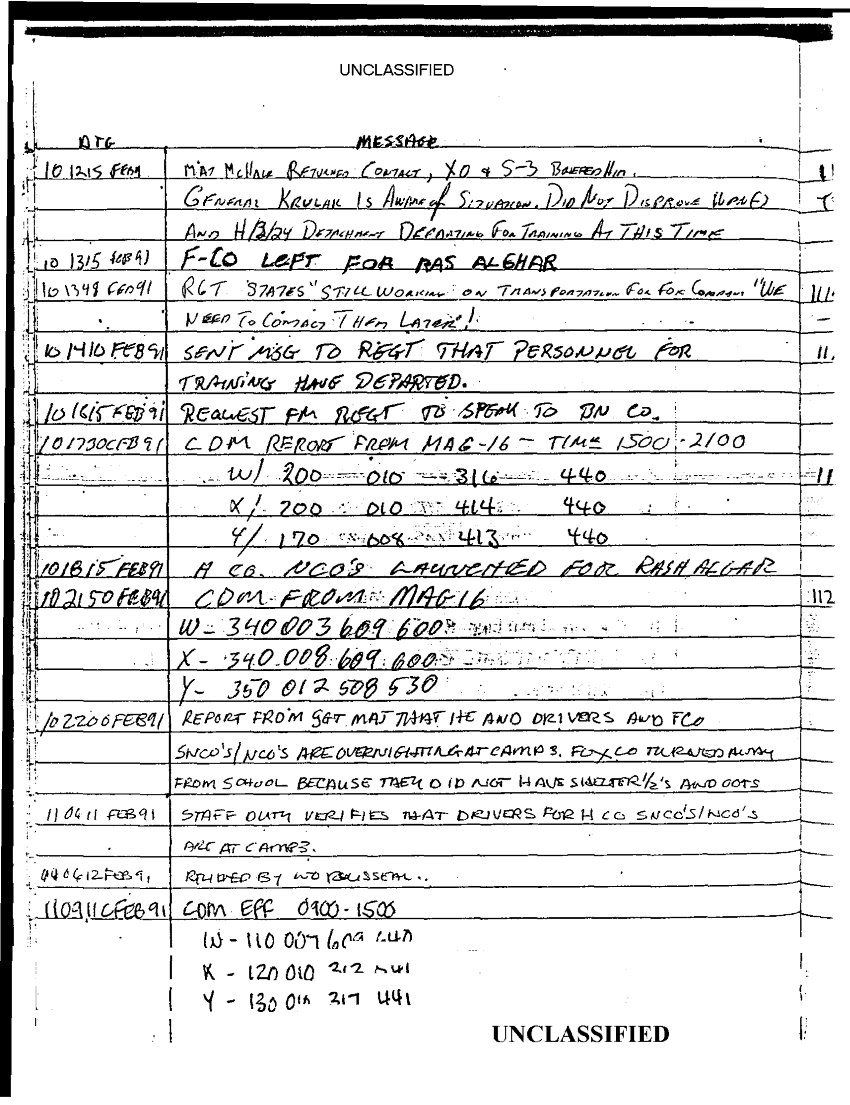 UNCLASSIFIED
DTG MESSAGE
101215 FEB91 MAJ McHALE RETURNED CONTACT, XO & S-3 BRIEFED HIM.
GENERAL KRULAK IS AWARE of SITUATION. DID NOT DISPROVE
AND H/3/24 DETACHMENT DEPARTING FOR TRAINING AT THIS TIME
10 1315 FEB91 F-CO LEFT FOR RAS ALGHAR
101348 FEB91 RGT "STATES" STILL WORKING ON TRANSPORTATION FOR FOX COMPANY "WE
NEED TO CONTACT THEM LATER"!
101410 FEB91 SENT MSG TO REGT THAT PERSONNEL FOR
TRAINING HAVE DEPARTED.
101615 FEB91 REQUEST FM REGT TO SPEAK TO BN CO.
101730CFEB91 CDM REPORT FROM MAG-16 - TIME 1500-2100
W/ 200 010 316 440
X/ 200 010 414 440
Y/ 170 008 413 440
101815 FEB91 H CO. NCO'S LAUNCHED FOR RASH ALGAR
102150FEB91 CDM FROM MAG16
W- 340 003 609 600
X- 340 008 609 600
Y- 350 012 508 530
102200FEB91 REPORT FROM SGT MAJ THAT HE AND DRIVERS AND FCO
SNCO'S/NCO'S ARE OVERNIGHTING AT CAMP 3. FOXCO TURNED AWAY
FROM SCHOOL BECAUSE THEY DID NOT HAVE SHELTER 1/2'S AND COTS
110411 FEB91 STAFF DUTY VERIFIES THAT DRIVERS FOR H CO SNCO'S/NCO'S
ARE AT CAMP 3.
BY WO
110911CFEB91 CDM EFF 0900-1500
W - 110 007
X - 120 010 212
Y - 130 217 441
UNCLASSIFIED